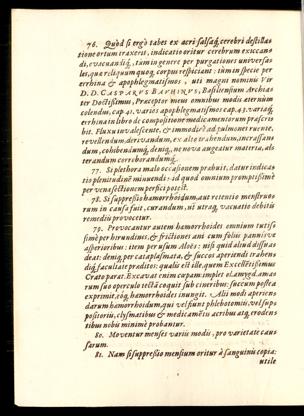 76. Quòd si ergò tabes ex acri salsaq́; cerebri destilla
tione ortum traxerit, indicatio oritur cerebrum exiccan
di, evacuandiq́;, tùm in genere per purgationes universa
les, quæ reliquum quoq; corpus respiciant: tùm in specie per
errhina & apophlegmatismos, uti magni nominis Vir
D. D. CASPARUS BAUHINUS, Basileensium Archia
ter Doctissimus, Præceptor meus omnibus modis æternùm
colendus, cap. 41. varios apophlegmatismos cap. 43. variaq́;
errhina in libro de compositione medicamentorum præscri
bit. Fluxu invalescente, & immodicè ad pulmones ruente,
revellendum, derivandum, ex alto trahendum, incrassan
dum, cohibendumq́; deniq;, ne nova augeatur materia, als
terandum corroborandumq́;.
77. Si plethora malo occasionem præbuit, datur indica
tio plenitudinē minuendi: id quod omnium promptissimè
per venæ sectionem perfici potest.
78. Si suppressio hæmorrhoidum, aut retentio menstruo
rum in causa fuit, curandum, ut utraq; vacuatio debitis
remediis provocetur.
79. Provocantur autem hæmorrhoides omnium tutis
simè per hirundines, & frictiones ani cum foliis
asperioribus: item per usum Aloës: nisi quid aliud dissua
deat: deniq; per cataplasmata, & succos aperiendi
diq́; facultate præditos: qualis est ille, quem Excellētissimus
Crato parat. Excavat enim cepam implet ol. amygd. ama
rum suo operculo tectā coquit sub cineribus: succum postea
exprimit, eóq; hæmorrhoides inungit. Alii modi aperien
darum hæmorrhoidum, qui vel fiunt phlebotomiâ, vel sup
positoriis, clysmatibus & medicamētis acribus atq; eroden
tibus nobis minimè probantur.
80. Moventur menses variis modis, pro varietate caus
sarum.
81. Nam si suppressio mensium oritur à sanguinis copia:
utile